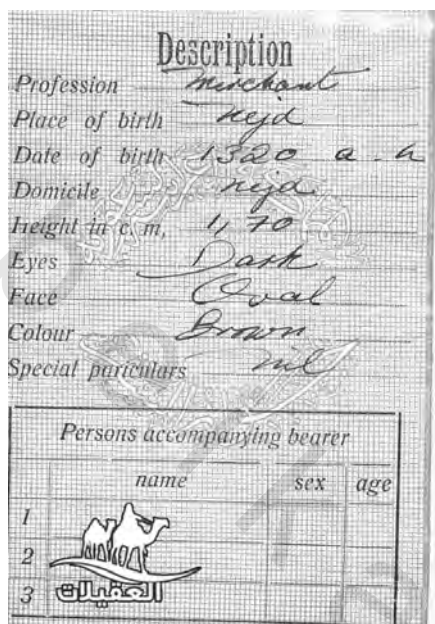 Description
Profession Merchant
Place of birth Nejd
Date of birth 1320 a.h
Domicile Nejd
Height in c, m, 1,70
Eyes Dark
Face Oval
Colour Brown
Special particulars nil
Persons accompanying bearer
name sex age
1
2
3
العقيلات